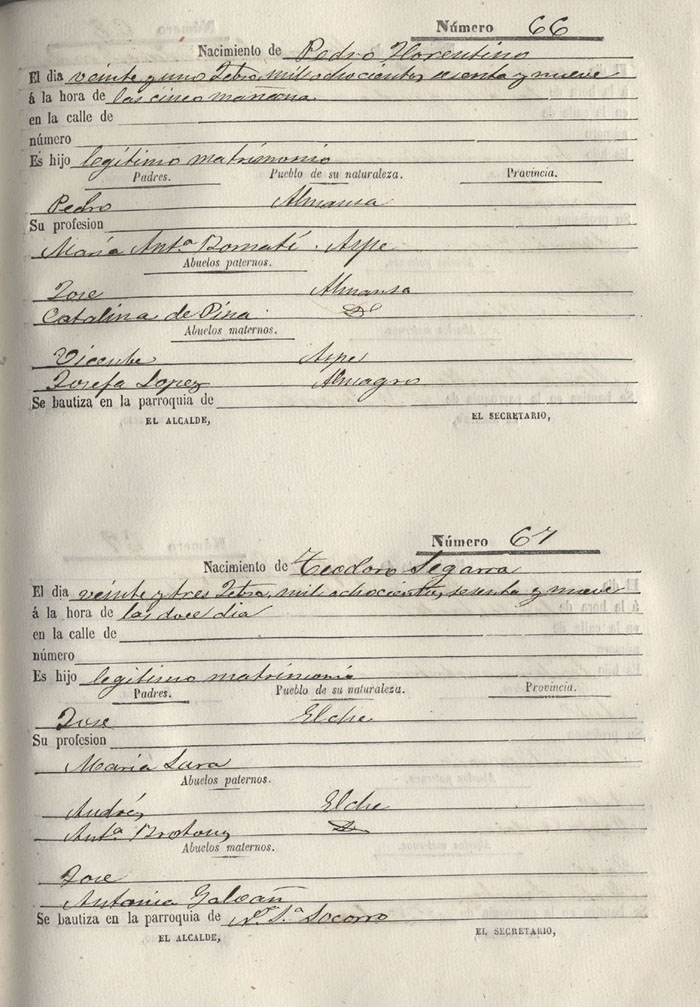 Número 66
Nacimiento de Pedro Florentino
El dia veinte y uno 7bre. mil ochocientos, sesenta y nueve
á la hora de las cinco mañana
en la calle de
número
Es hijo legitimo matrimonio
Padres. Pueblo de su naturaleza. Provincia.
Pedro Almansa
Su profesion
Maria Ant.ª Bomatí. Aspe
Abuelos paternos.
Jose Almansa
Catalina de Pina. Dº
Abuelos maternos.
Vicente Aspe
Josefa Lopez Almagro
Se bautiza en la parroquia de
EL ALCALDE, EL SECRETARIO,
Número 67
Nacimiento de Teodoro Segarra
El dia veinte y tres 7bre. mil ochocientos, sesenta y nueve
á la hora de las doce dia
en la calle de
número
Es hijo legitimo matrimonio
Padres. Pueblo de su naturaleza. Provincia.
Jose Elche
Su profesion
Maria Lara
Abuelos paternos.
Andrés Elche
Ant.ª Brotons
Abuelos maternos.
Jose
Antonia Galvañ
Se bautiza en la parroquia de N.ª S.ª Socorro
EL ALCALDE, EL SECRETARIO,